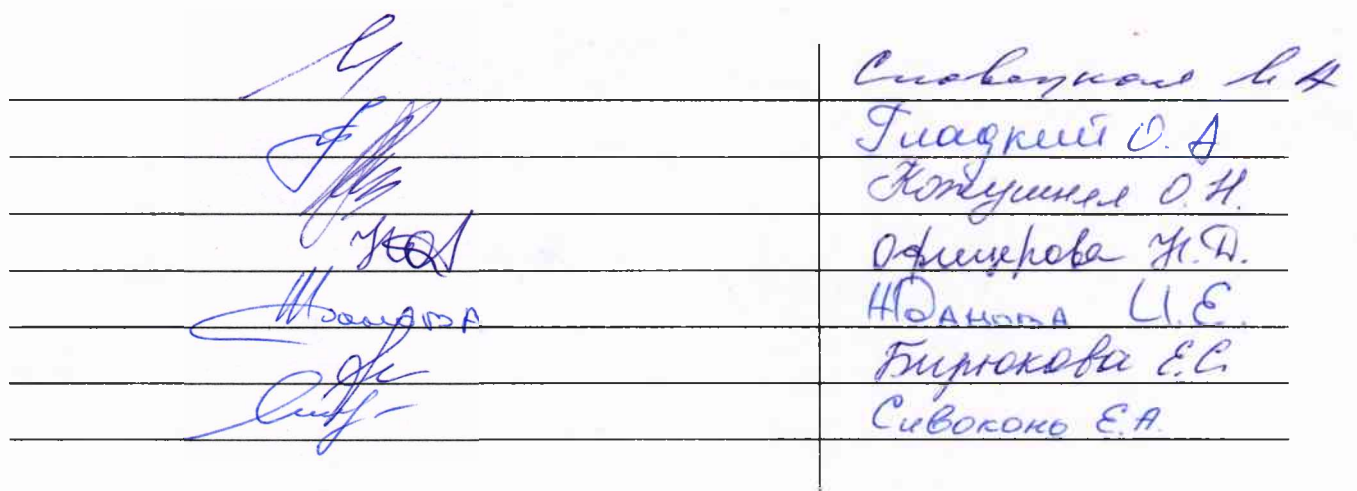 Словацкая И.А
Гладкий О.А
Кожушняя О.Н.
Офицерова Н.Д.
Жданова
Жданова И.Е.
Бирюкова Е.С.
Сивоконь Е.А.